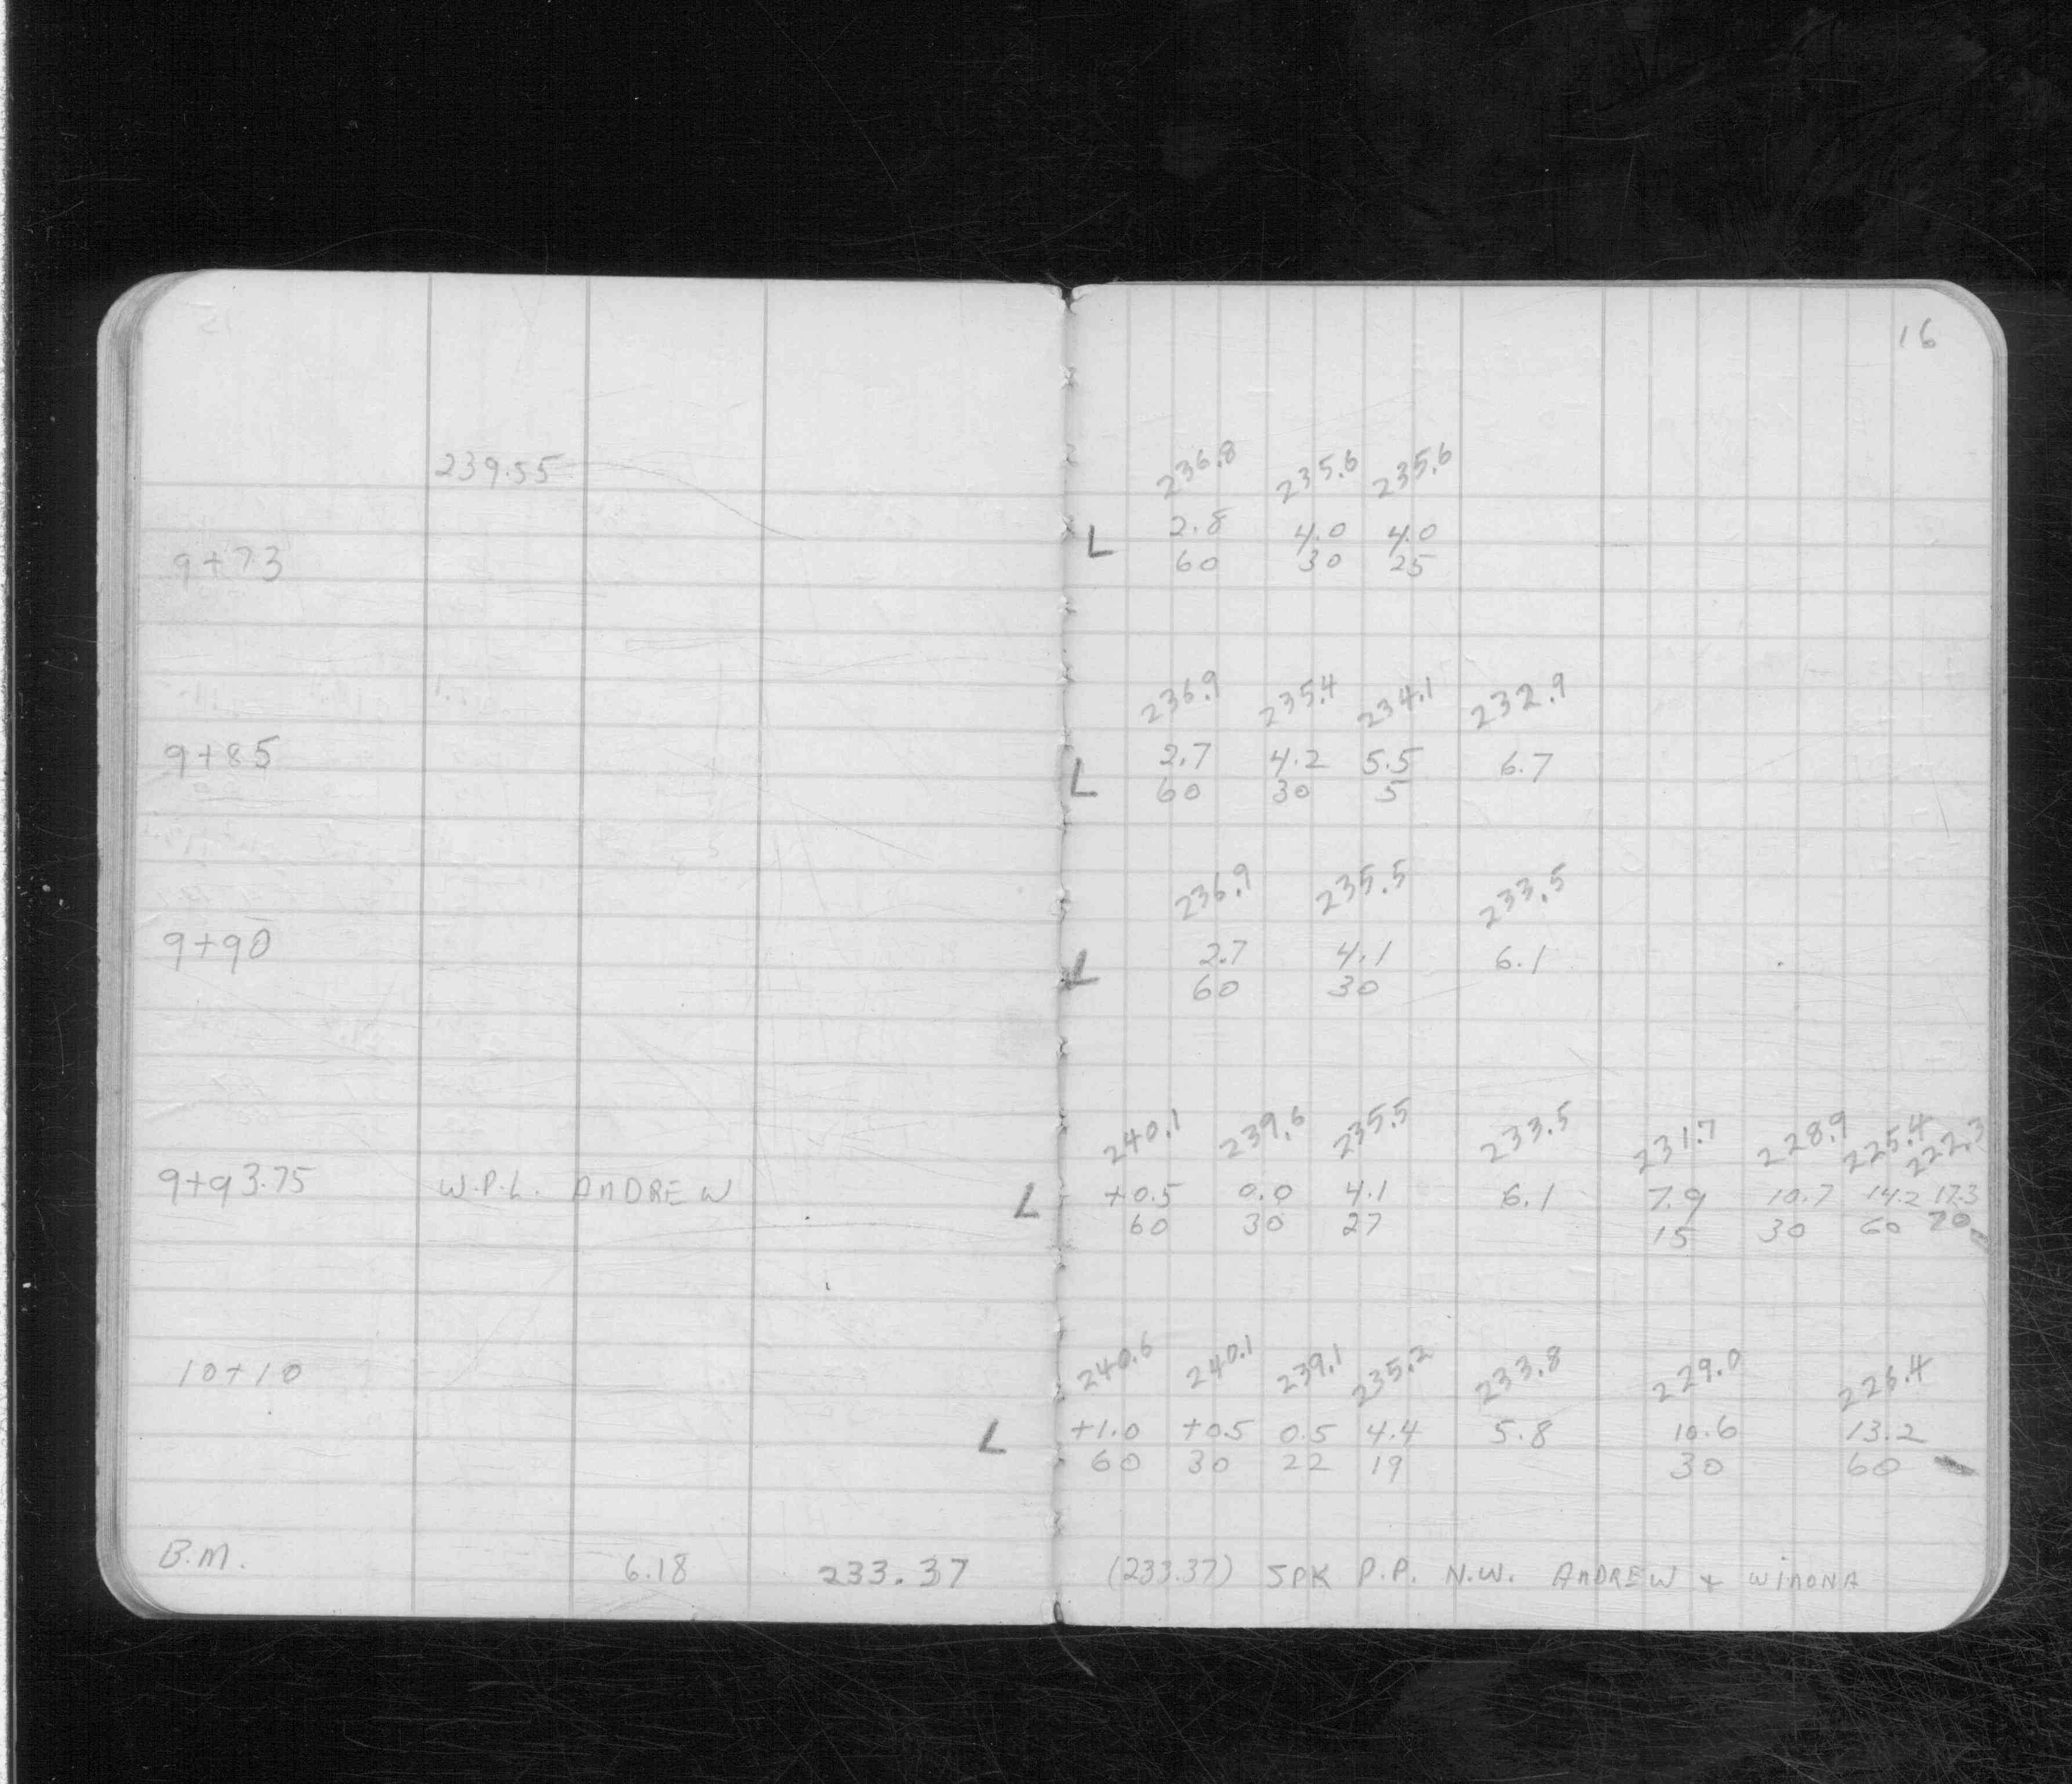 16
239.55 236.8 235.6 235.6
2.8 4.0 4.0
9+73 L 60 30 25
236.9 235.4 234.1 232.9
9+85 2.7 4.2 5.5 6.7
L 60 30 5
236.9 235.5 233.5
9+90 2.7 4.1 6.1
L 60 30
240.1 239.6 235.5 233.5 231.7 228.9 225.4 222.3
9+93.75 W.P.L. ANDREW L +0.5 0.0 4.1 6.1 7.9 10.7 14.2 17.3
60 30 27 15 30 60 70
10+10 240.6 240.1 239.1 235.2 233.8 229.0 226.4
L +1.0 +0.5 0.5 4.4 5.8 10.6 13.2
60 30 22 19 30 60
B.M. 6.18 233.37 (233.37) SPK P.P. N.W. ANDREW & WINONA